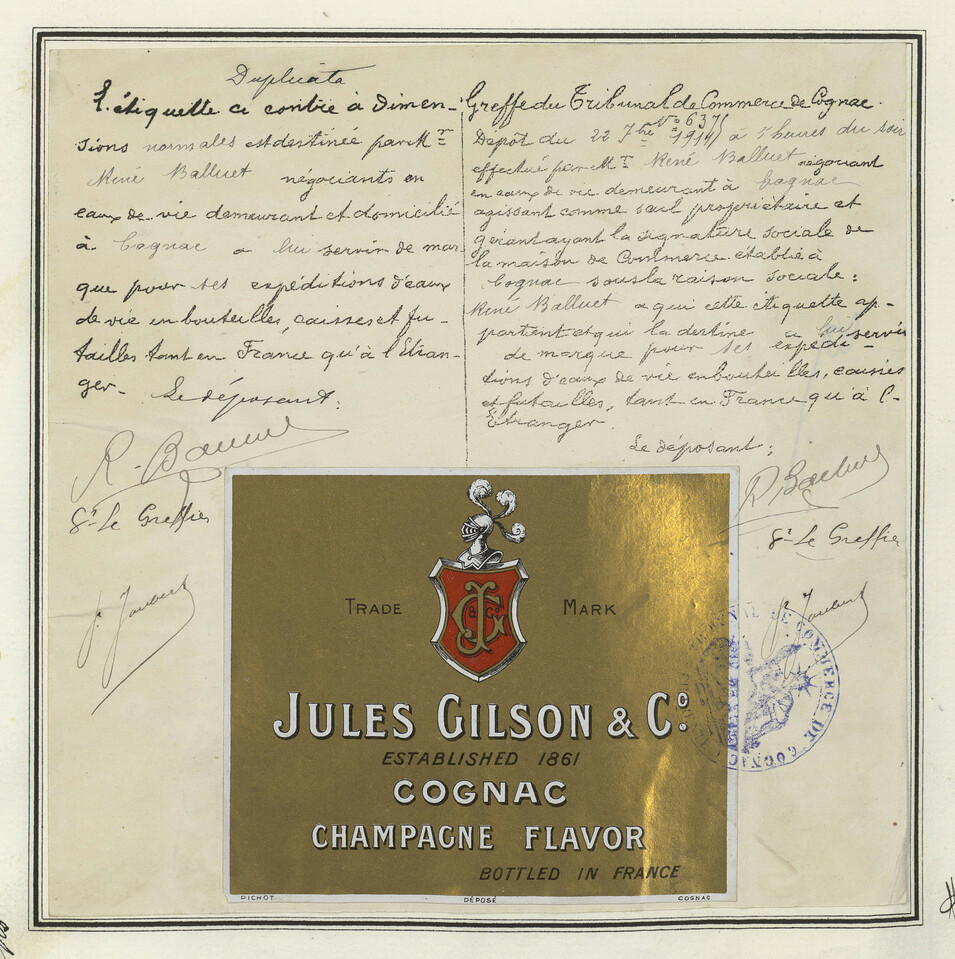 Duplicata
L'étiquette ci contre à dimen-
sions normales est destinée par Mr
René Balluet négociants en
eaux de vie demeurant et domicilié
à Cognac a lui servir de mar
que pour ses expéditions d'eaux
de vie en bouteilles, caisses et fu-
tailles tant en France qu'à l'Etran-
ger. Le déposant:
Gr Le Greffier
Greffe du Tribunal de Commerce de Cognac.
No 637
Dépôt du 22 7bre 191 à 5 heures du soir
effectué par Mr René Balluet négociant
en eaux de vie demeurant à Cognac
agissant comme seul propriétaire et
gérant ayant la signature sociale de
la maison de Commerce établie à
Cognac sous la raison sociale:
René Balluet a qui cette étiquette ap-
partient et qui la destine a lui servir
de marque pour ses expédi-
tions d'eaux de vie en bouteilles, caisses
et futailles, tant en France qu'à l'-
Etranger.
Le déposant:
Gr Le Greffier
TRADE MARK
J & Co G
JULES GILSON & Co.
ESTABLISHED 1861
COGNAC
CHAMPAGNE FLAVOR
BOTTLED IN FRANCE
PICHOT DÉPOSÉ COGNAC
TRIBUNAL DE COMMERCE DE COGNAC